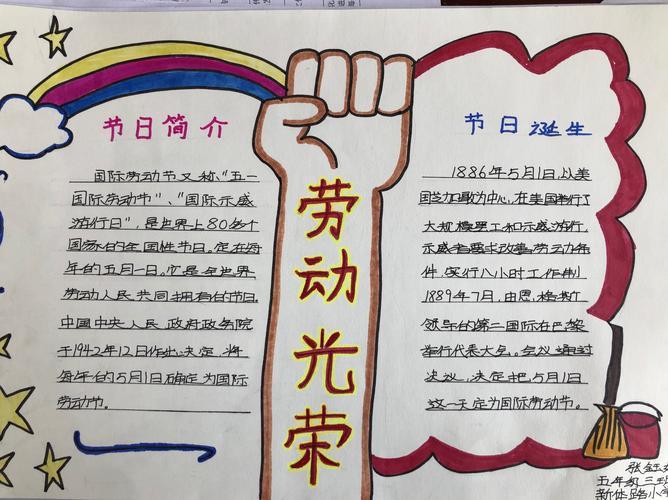 节日简介
国际劳动节又称"五一
国际劳动节"、"国际示威
游行日"，是世界上80多个
国家的全国性节日。定在每
年的五月一日。它是全世界
劳动人民共同拥有的节日。
中国中央人民政府政务院
于1942年12日作出决定，将
每年的5月1日确定为国际
劳动节。
劳动光荣
节日诞生
1886年5月1日,以美
国芝加哥为中心,在美国举行了
大规模罢工和示威游行,
示威者要求改善劳动条
件,实行八小时工作制
1889年7月,由恩格斯
领导的第二国际在巴黎
举行代表大会。会议通过
决议,决定把5月1日
这一天定为国际劳动节。
张钰
五年级三
新体路小